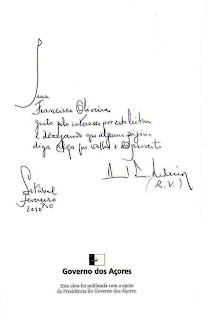 Para
Francisco Oliveira
grato pelo interesse por esta leitura
e desejando que alguma página
diga algo que valha e aproveite
(R.V.)
Setúbal
Fevereiro
2010
Governo dos Açores
Esta obra foi publicada com o apoio
da Presidência do Governo dos Açores.